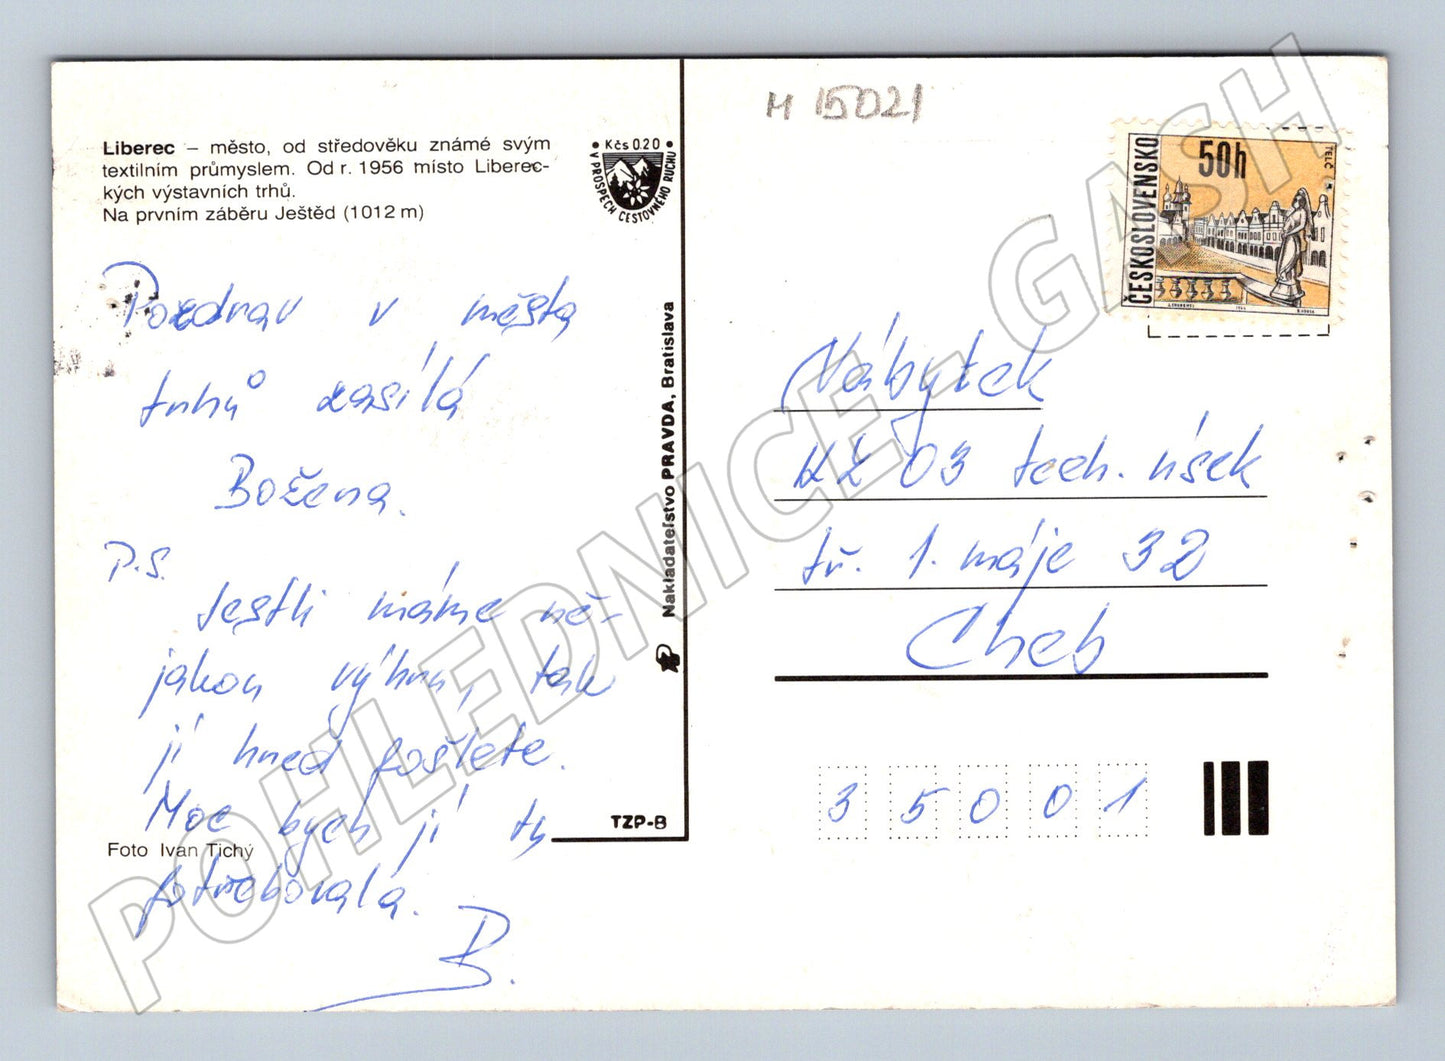 H 15021
Liberec – město, od středověku známé svým
textilním průmyslem. Od r. 1956 místo Liberec-
kých výstavních trhů.
Na prvním záběru Ještěd (1012 m)
• Kčs 0.20 •
V PROSPĚCH CESTOVNÉHO RUCHU
Pozdrav v města
trhů zasílá
Božena.
P.S.
Jestli máme ně-
jakou výhru, tak
ji hned pošlete.
Moc bych ji tu
potřebovala.
B.
Foto Ivan Tichý
TZP-B
Nakladateľstvo PRAVDA, Bratislava
ČESKOSLOVENSKO
50h
TELČ
Nábytek
KZ 03 tech. úsek
tř. 1. máje 32
Cheb
35001
POHLEDNICE - GASH